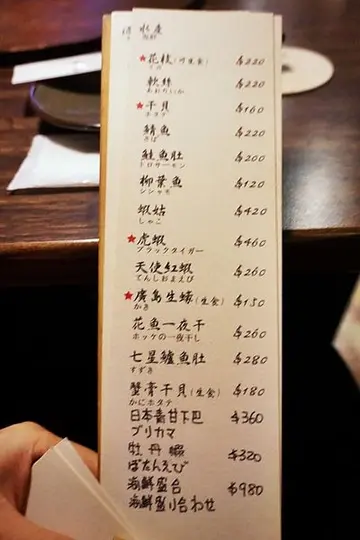 水產
★花枝(可生食) $220
いか
軟絲 $220
あおりいか
★干貝 $160
ホタテ
鯖魚 $220
さば
鮭魚肚 $200
トロサーモン
柳葉魚 $120
シシャモ
蝦姑 $420
しゃこ
★虎蝦 $460
ブラックタイガー
天使紅蝦 $260
てんしおまえび
★廣島生蠔(生食) $150
かき
花魚一夜干 $260
ホッケの一夜干し
七星鱸魚肚 $280
すずき
蟹膏干貝(生食) $180
かにホタテ
日本青甘下巴 $360
ブリカマ
牡丹蝦 $320
ぼたんえび
海鮮盛合 $980
海鮮盛り合わせ